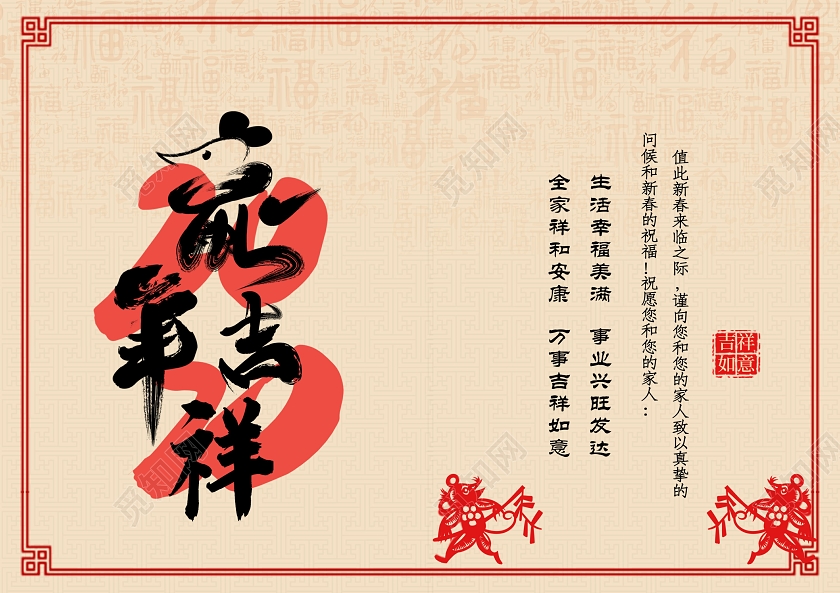 值此新春来临之际,谨向您和您的家人致以真挚的
问候和新春的祝福!祝愿您和您的家人:
生活幸福美满 事业兴旺发达
全家祥和安康 万事吉祥如意
吉祥
如意
鼠
年吉
祥
2020
觅知网